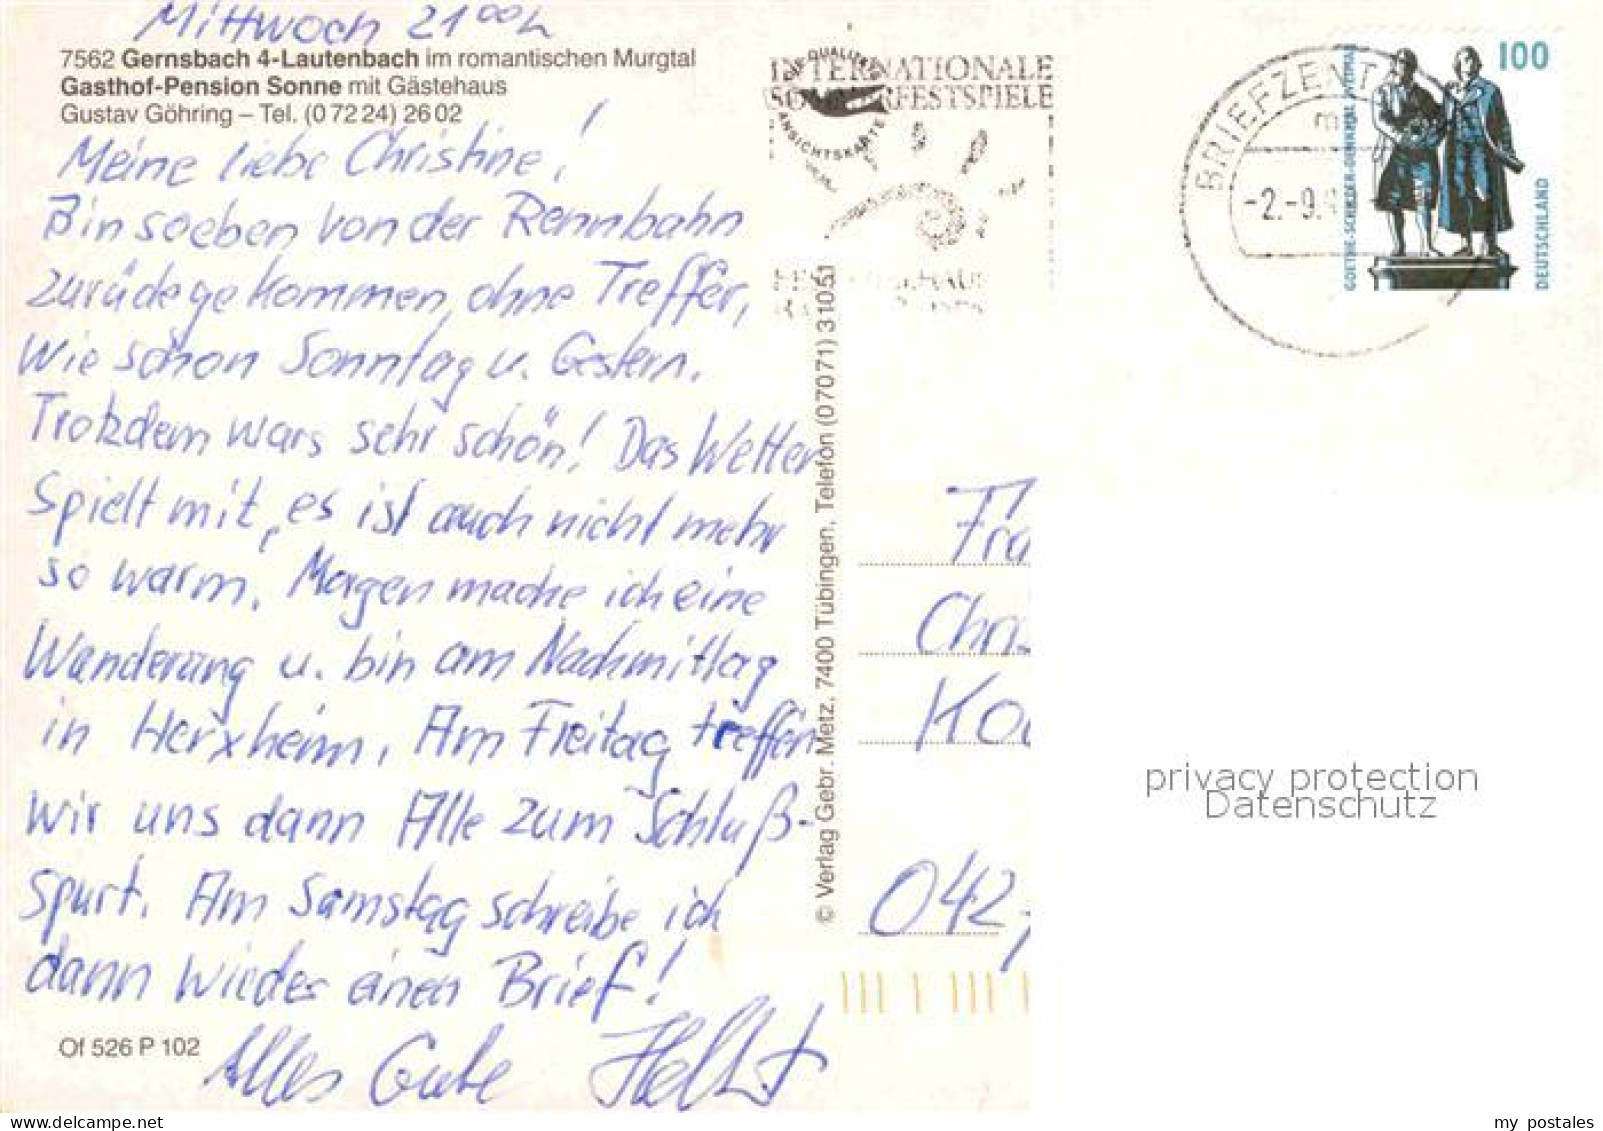 Mittwoch 21 00 h
7562 Gernsbach 4-Lautenbach im romantischen Murgtal
Gasthof-Pension Sonne mit Gästehaus
Gustav Göhring – Tel. (0 72 24) 26 02
Meine liebe Christine!
Bin soeben von der Rennbahn
zurück gekommen, ohne Treffer,
wie schon Sonntag u. Gestern.
Trotzdem wars sehr schön! Das Wetter
spielt mit, es ist auch nicht mehr
so warm. Morgen mache ich eine
Wanderung u. bin am Nachmittag
in Herxheim. Am Freitag treffen
wir uns dann Alle zum Schluß-
spurt. Am Samstag schreibe ich
dann wieder einen Brief!
Alles Gute
Of 526 P 102
© Verlag Gebr. Metz, 7400 Tübingen, Telefon (07071) 31051
INTERNATIONALE
ANSICHTSKARTE
BRIEFZENT
-2.-9.9
100
GOETHE-SCHILLER-DENKMAL WEIMAR
DEUTSCHLAND
Fra
Chris
042
privacy protection
Datenschutz
my postales